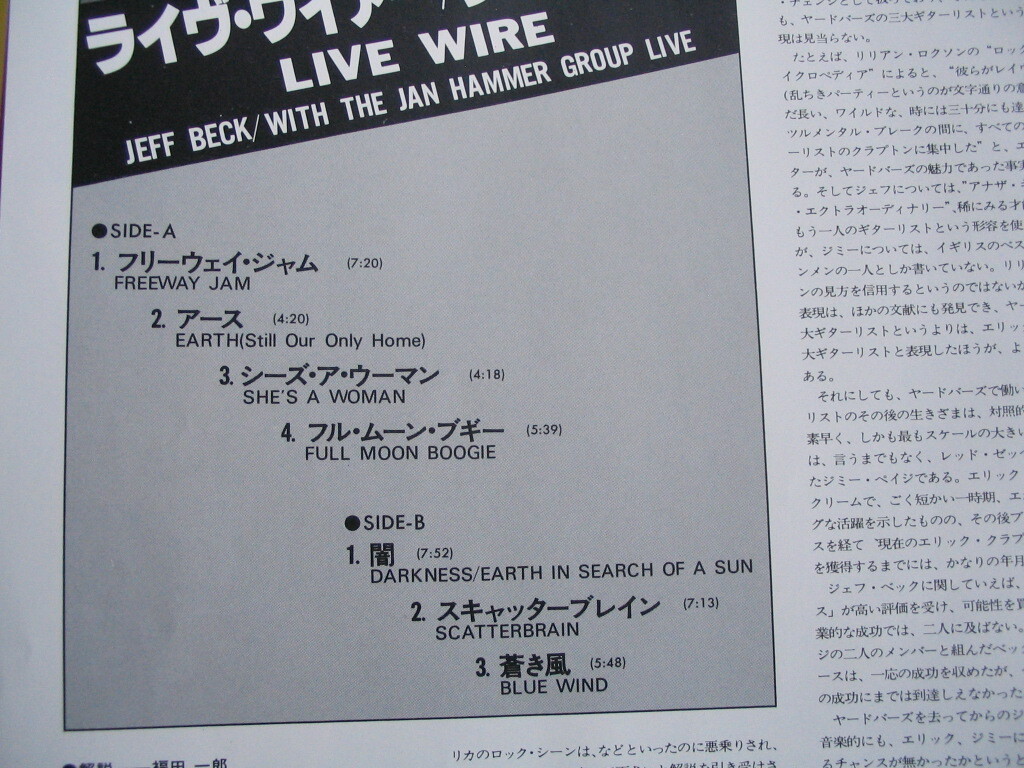 ライヴ・ワイアー
LIVE WIRE
JEFF BECK/WITH THE JAN HAMMER GROUP LIVE
●SIDE-A
1. フリーウェイ・ジャム (7:20)
FREEWAY JAM
2. アース (4:20)
EARTH(Still Our Only Home)
3. シーズ・ア・ウーマン (4:18)
SHE'S A WOMAN
4. フル・ムーン・ブギー (5:39)
FULL MOON BOOGIE
●SIDE-B
1. 闇 (7:52)
DARKNESS/EARTH IN SEARCH OF A SUN
2. スキャッターブレイン (7:13)
SCATTERBRAIN
3. 蒼き風 (5:48)
BLUE WIND
●解説──福田 一郎
リカのロック・シーンは、などといったのに悪乗りされ、
も、ヤードバーズの三大ギターリストという
現は見当らない。
たとえば、リリアン・ロクソンの“ロック
イクロペディア”によると、“彼らがレイヴ
(乱ちきパーティーというのが文字通りの意
だ長い、ワイルドな、時には三十分にも達
ツルメンタル・ブレークの間に、すべての
ーリストのクラプトンに集中した”と、エ
ターが、ヤードバーズの魅力であった事実
る。そしてジェフについては、”アナザ・ギ
・エクトラオーディナリー”、稀にみる才能
もう一人のギターリストという形容を使
が、ジミーについては、イギリスのベス
ンメンの一人としか書いていない。リリ
ンの見方を信用するというのではないが
表現は、ほかの文献にも発見でき、ヤー
大ギターリストというよりは、エリッ
大ギターリストと表現したほうが、よ
ある。
それにしても、ヤードバーズで働い
リストのその後の生きざまは、対照的
素早く、しかも最もスケールの大きい
は、言うまでもなく、レッド・ゼッペ
たジミー・ペイジである。エリック
クリームで、ごく短かい一時期、エ
グな活躍を示したものの、その後ブ
スを経て〝現在のエリック・クラプ
を獲得するまでには、かなりの年月
ジェフ・ベックに関していえば、
ス」が高い評価を受け、可能性を買
業的な成功では、二人に及ばない。
ジの二人のメンバーと組んだベッ
ースは、一応の成功を収めたが、
の成功にまでは到達しえなかった
ヤードバーズを去ってからのジ
音楽的にも、エリック、ジミーに
るチャンスが無かったかというと